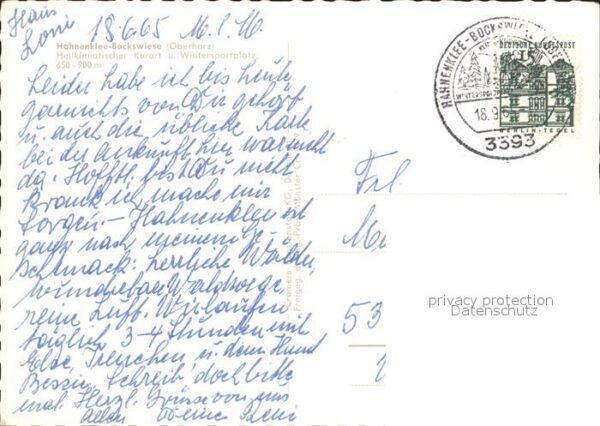 Haus
Loni
18.9.65 M. l. M.
Hahnenklee-Bockswiese (Oberharz)
Heilklimatischer Kurort u. Wintersportplatz
650 - 900 m
Leider habe ich bis heute
garnichts von Dir gehört
u. auch die übliche Karte
bei der Ankunft hier war nicht
da. Hofftl. bist Du nicht
krank ich mache mir
Sorgen. – Hahnenklee ist
ganz nach meinem Ge-
schmack: herrliche Wälder,
wunderbare Waldwege
reine Luft. Wir laufen
täglich 3-4 Stunden mit
Else, Trenchen, u. dem Hund
Bessie. Schreib, doch bitte
mal. Herzl. Grüsse von uns
allen Deine Leni
HAHNENKLEE-BOCKSWIESE
WINTERSPORT
18.9.6
3393
DEUTSCHE BUNDESPOST
15
BERLIN-TEGEL
Frl.
M
53
privacy protection
Datenschutz